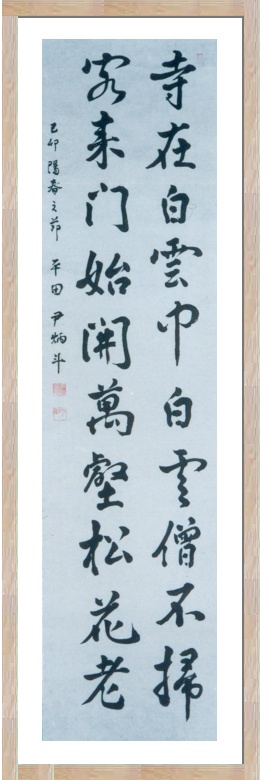 寺在白雲中白雲僧不掃
客来门始開萬壑松花老
己卯陽春之節 平田 尹炳斗